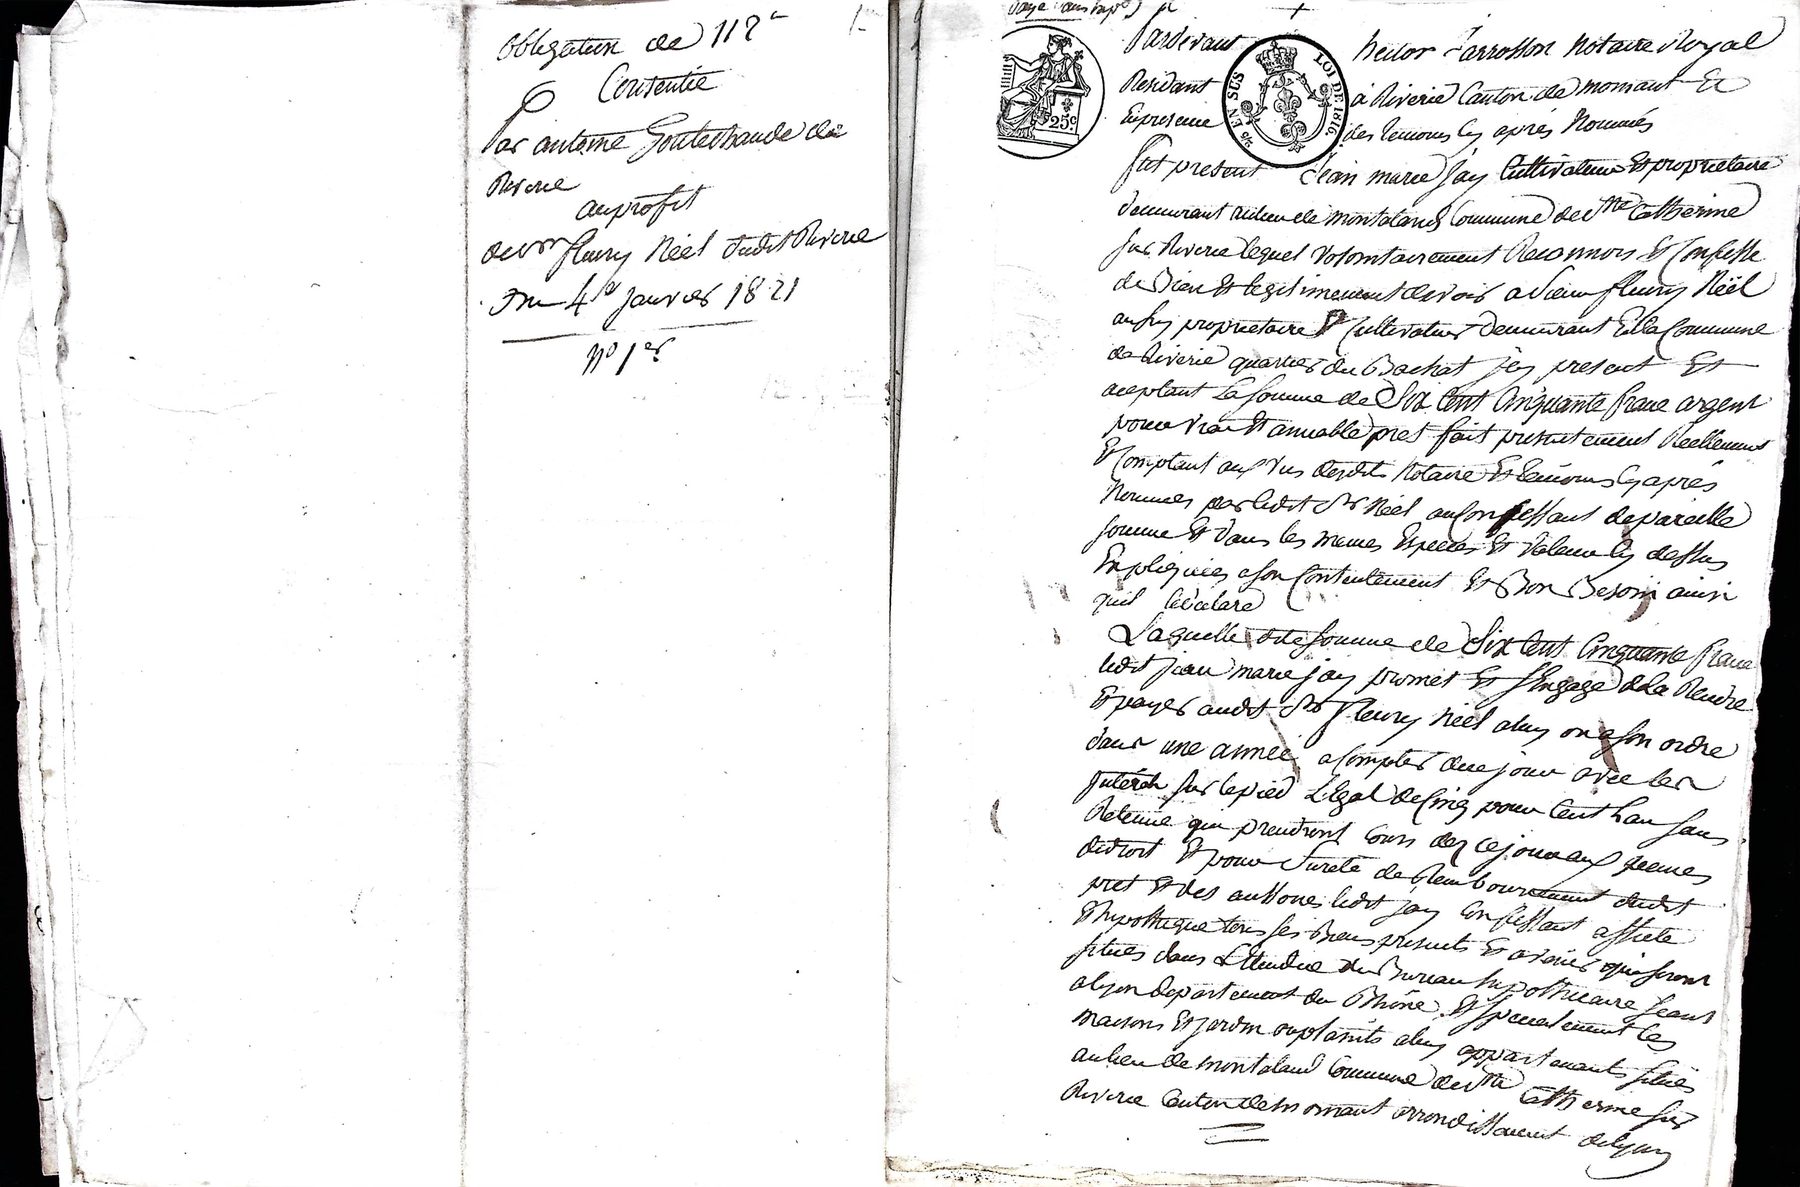 obligation de 112
Consentie
Par antoine Goutechaude de
Riverie
au profit
de Sr fleury Néel dudit Riverie
Du 4 janvier 1821
N° 1er
Pardevant hector Parrosson Notaire Royal
Residant à Riverie Canton de mornant Et
En presence des temoins cy après Nommés
fut present Jean marie jay Cultivateur Et proprietaire
demeurant au lieu de montaland Commune de Ste Catherine
sur Riverie lequel volontairement Reconnois Et Confesse
de Bien Et legitimement devoir a Sieur fleury Néel
aussy proprietaire Et Cultivateur demeurant En la Commune
de Riverie quartier du Bachat jcy present Et
aceptant La somme de Six Cent Cinquante franc argent
pour vrai Et amiable pret fait presentement Réellement
Et Comptant aux vus desdits Notaire Et temoins cy après
Nommés par ledit Sr Néel au Confessant de pareille
somme Et dans les memes Especes Et valeur cy dessus
Expliquées a son Contentement Et Bon Besoin ainsi
quil declare
Laquelle dite somme de Six Cent Cinquante franc
ledit jean marie jay promet Et sengage de La Rendre
Et payer audit Sr fleury Néel a luy ou a son ordre
dans une année a Compter de ce jour avec les
Interets sur le pied Légal de Cinq pour Cent lan sans
Retenue qui prendront Cours dez ce jour aux peines
de droit Et pour Sureté de Remboursement dudit
pret Et des accessoires ledit jay Confessant affecte
Et hypotheque tous ses Biens presents Et avenir qui seront
situés dans L'Etendue du Bureau hypothecaire seant
a lyon departement du Rhône, Et specialement les
maisons Et jardin a luy appartenants situés
au lieu de montaland Commune de Ste Catherine sur
Riverie Canton de mornant arrondissement de lyon
25c.
EN SUS
LOI DE 1816.